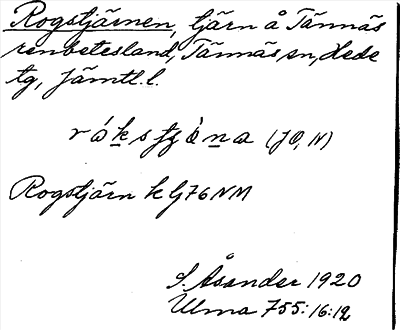 Rogstjärnen, tjärn å Tännäs
renbetesland, Tännäs sn, Hede
tg, Jämtl. l.
(JO, N)
Rogstjärn k Lj 76 NM
S. Åsander 1920
Ulma 755:16:12